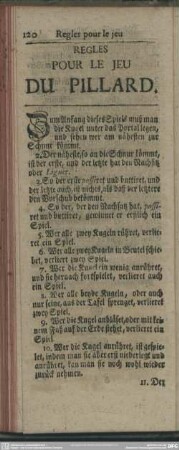 120 Regles pour le jeu
REGLES
POUR LE JEU
DU PILLARD.
Zum Anfang dieses Spiels muß man
die Kugel unter das Portal legen,
und sehen wer am nähesten zur
Schnur kömmt.
2. Der näheste, so an die Schnur kömmt,
ist der erste, und der letzte hat den Nachsatz
oder
3. So der erste passiret und buttiret, und
der letzte auch, ist nichts, als daß der letztere
den Vorschub bekömmt.
4. So der, der den Nachsatz hat, passi-
ret und buttiret, gewinnet er erstlich ein
Spiel.
5. Wer alle zwey Kugeln rühret, verliert
ein Spiel.
6. Wer alle zwey Kugeln in Beutel schie-
bet, verliert zwey Spiel.
7. Wer die Kugel in wenig anrühret,
und sie hernach fortspielet, verliert auch
ein Spiel.
8. Wer alle beyde Kugeln, oder auch
nur seine, aus der Tafel sprenget, verlieret
zwey Spiel.
9. Wer die Kugel anbläset, oder mit kei-
nem Fuß auf der Erde stehet, verlieret ein
Spiel.
10. Wer die Kugel anrühret, ist gespie-
let, indem man sie aber erst niederlegt und
anrühret, kan man sie noch wohl wieder
zurück nehmen.
11. Der